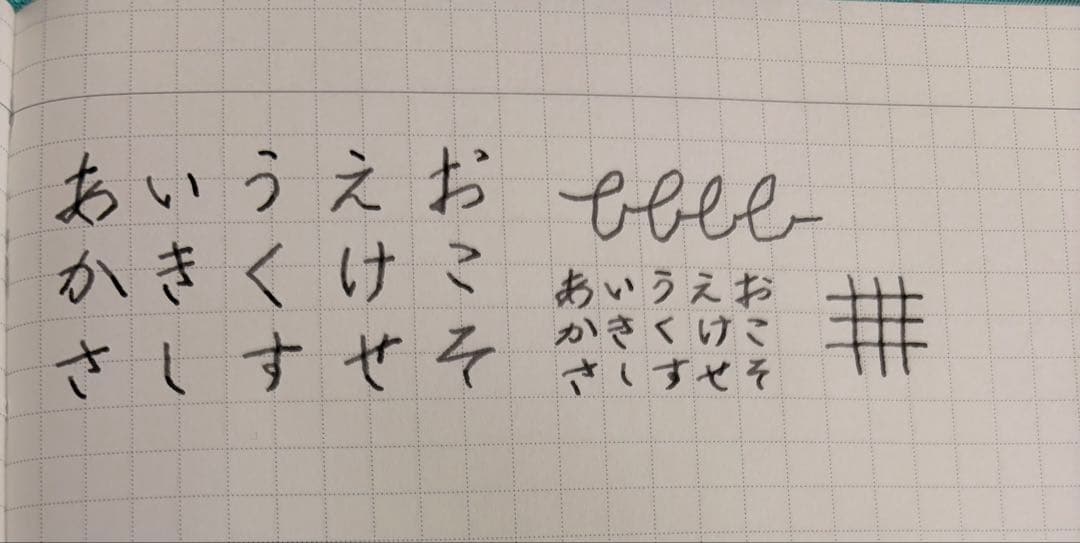 あいうえお
かきくけこ
さしすせそ
あいうえお
かきくけこ
さしすせそ